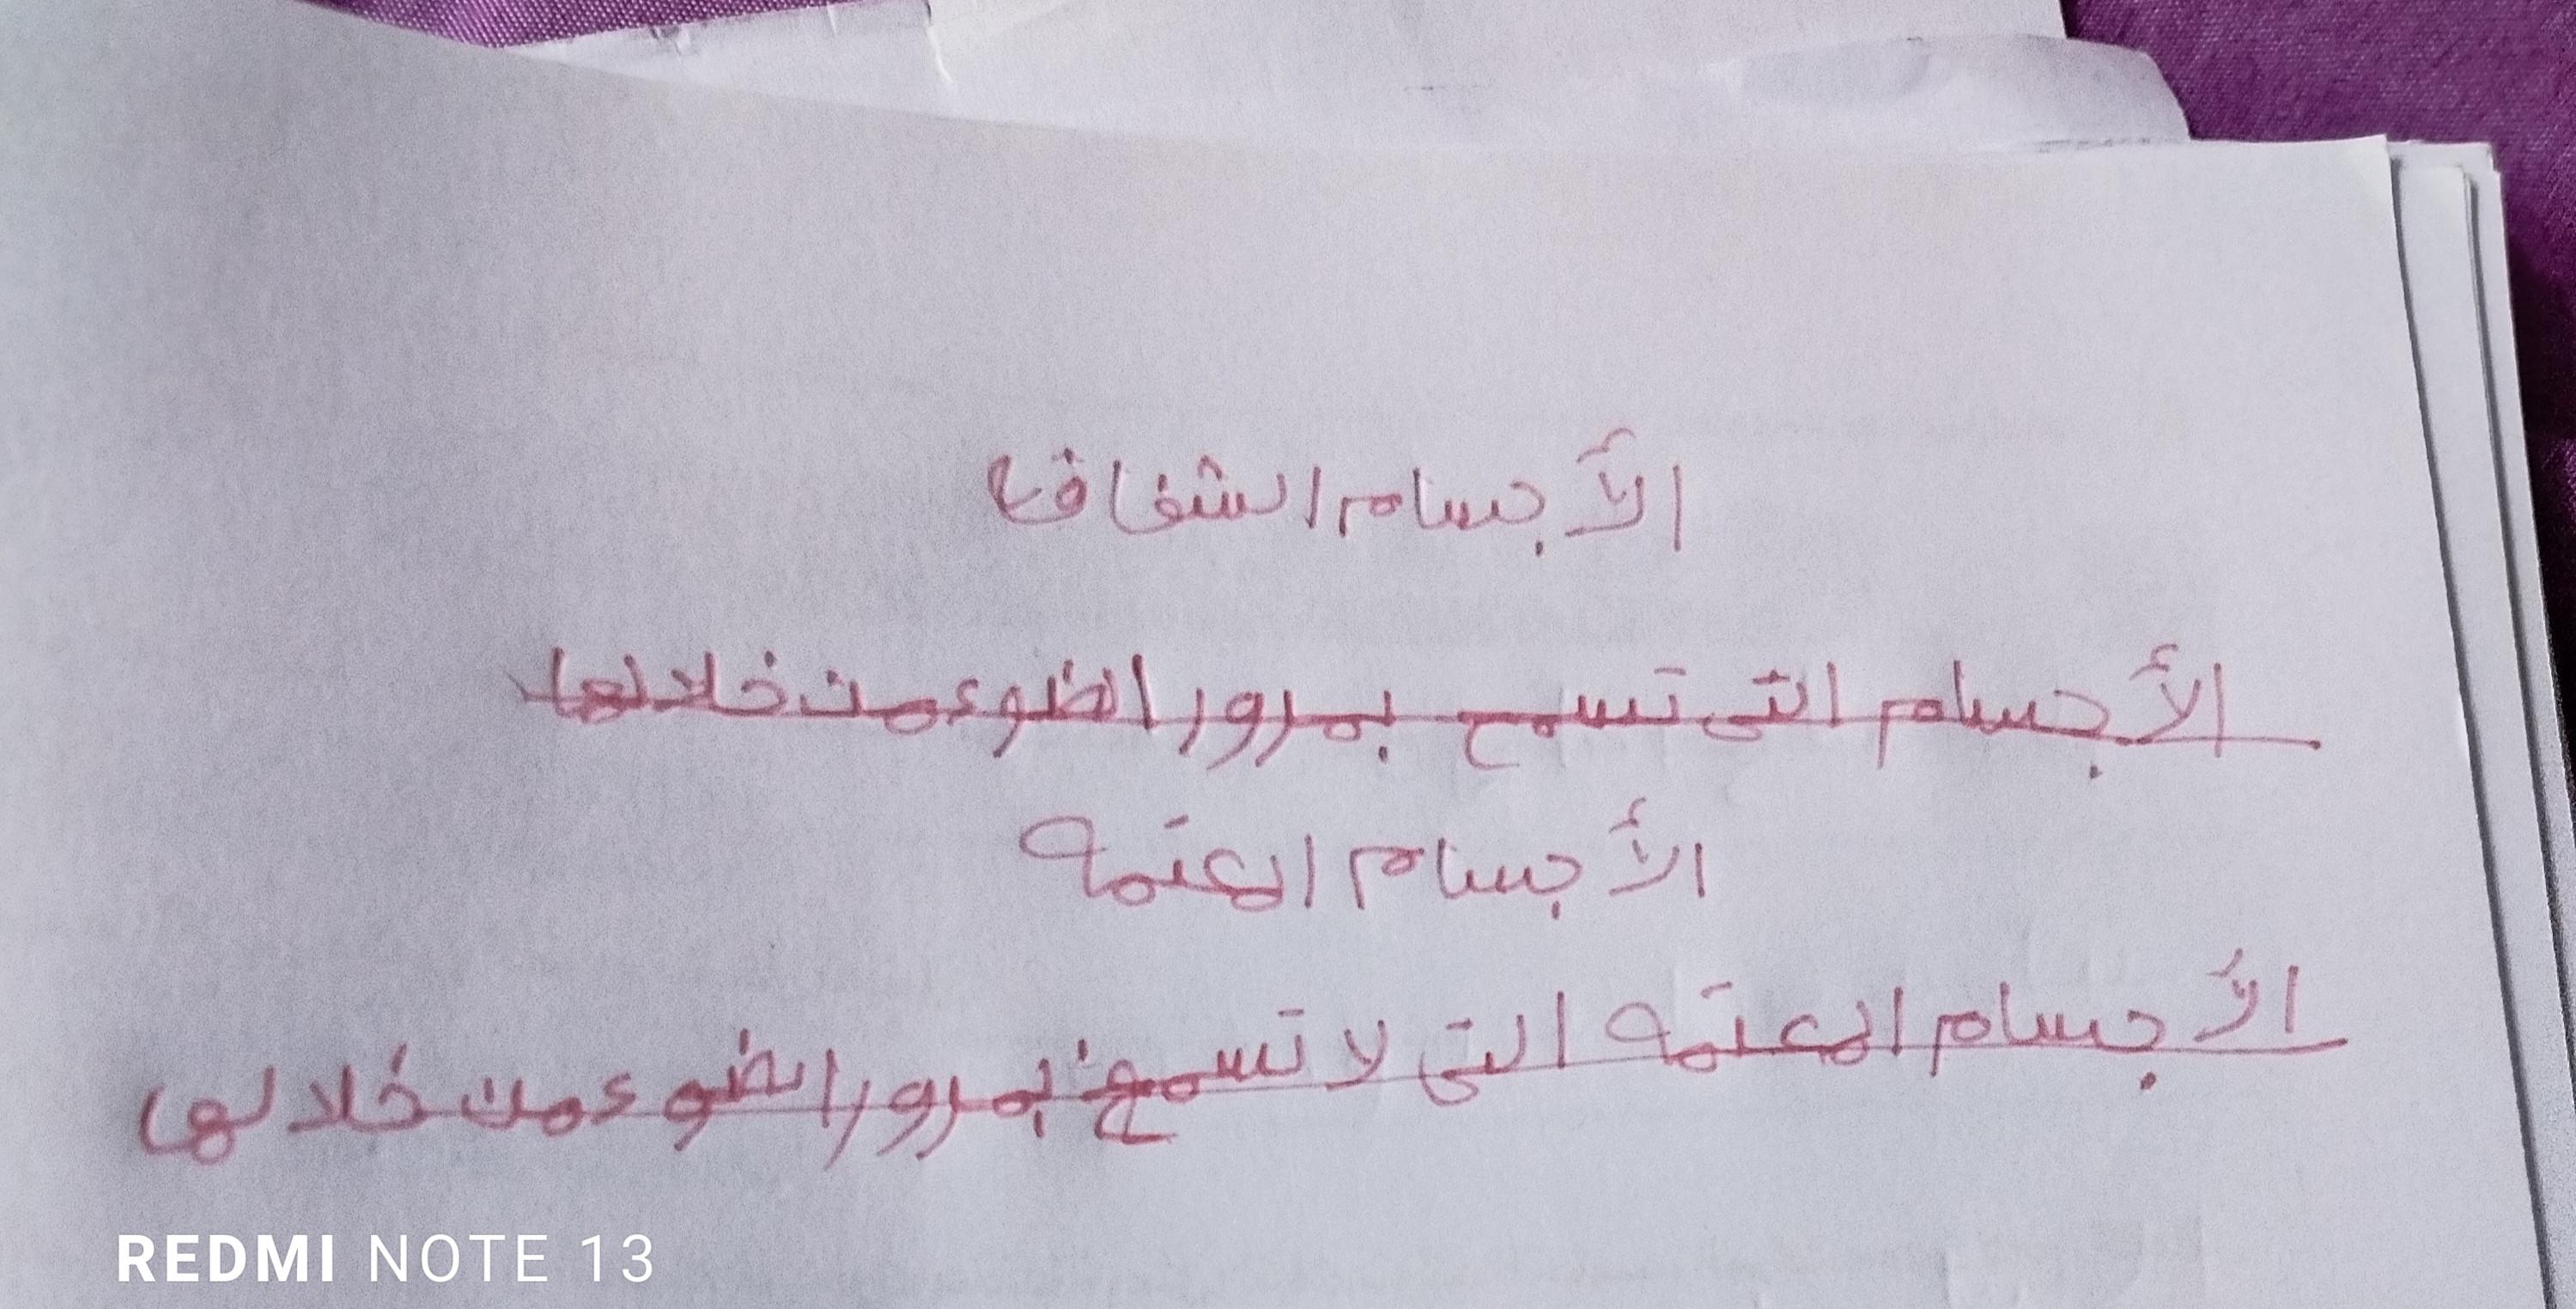 الأجسام الشفافه
الأجسام التى تسمح بمرور الضوء من خلالها
الأجسام المعتمه
الأجسام المعتمه التى لا تسمح بمرور الضوء من خلالها
REDMI NOTE 13